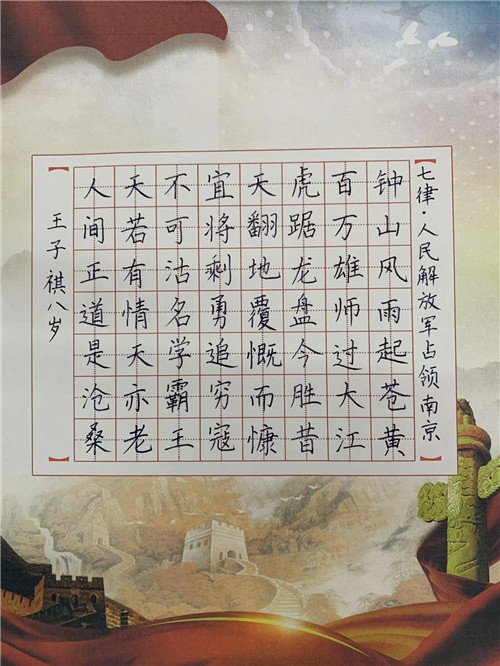 【七律·人民解放军占领南京】
钟山风雨起苍黄
百万雄师过大江
虎踞龙盘今胜昔
天翻地覆慨而慷
宜将剩勇追穷寇
不可沽名学霸王
天若有情天亦老
人间正道是沧桑
【王子祺八岁】